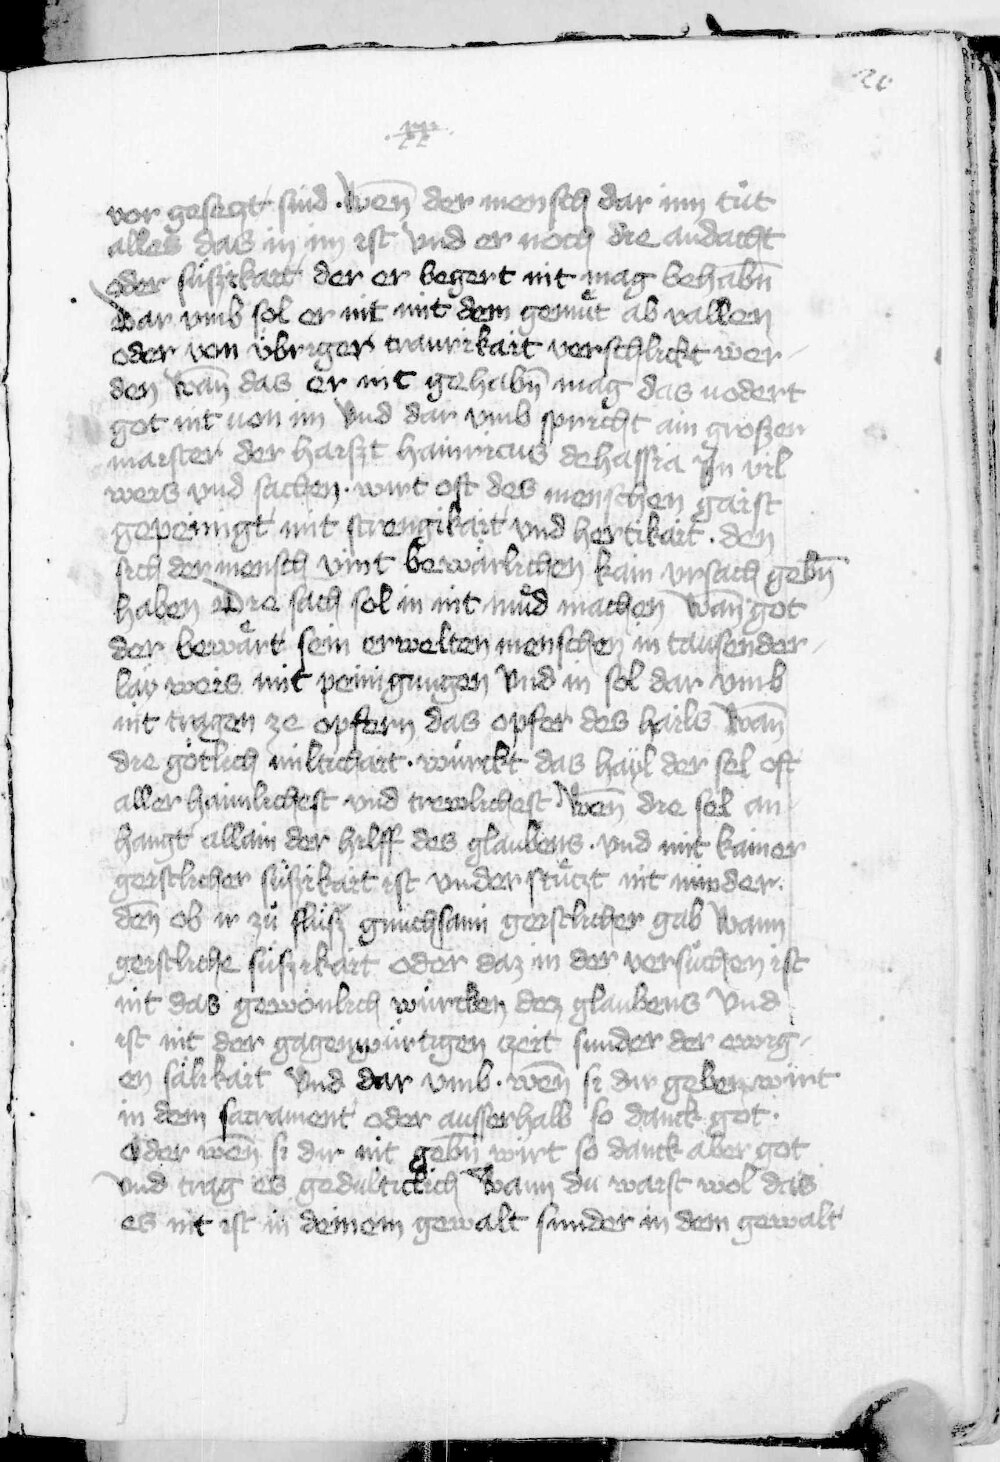 20
.xx.
vor gesetzt sind . wen̄ der mensch dar inn tůt
alles das in im ist vnd er noch die andacht
oder süszikait der er begert nit mag behabn̄
Dar vmb sol er nit mit dem gemůt ab vallen
oder von übriger traurikait verschlickt wer-
den wan̄ das er nit gehabn̄ mag das uodert
got nit uon im vnd dar vmb spricht ain groszer
maister der haiszt hainricus dehassia Jn vil
weis vnd sachen . wirt oft des menschen gaist
gepeinigt mit strengikait vnd hertikait . den
sich der mensch vint bewärlichen kain vrsach gebn̄
haben Die sach sol in nit můd machen wan̄ got
der bewärt sein erwelten menschen in tausender-
lay weis mit peinigungen vnd in sol dar vmb
nit tragen ze opfern das opfer des hails wan̄
die götlich miltichait . würckt das hayl der sel oft
aller haimlichest vnd trewlichest . wen̄ die sel an-
hangt allain der hilff des glaubens . vnd mit kainer
geistlicher süszikait ist vnderstützt nit minder
den̄ ob ir zů flüsz gnuchsam geistlicher gab wann
geistliche süszikait oder daz in der versůchen ist
nit das gewönlich würcken dez glaubens vnd
ist nit der gagenwürtigen zeit sunder der ewig-
en sälikait vnd dar vmb . wen̄ si dir geben wirt
in dem sacrament oder ausserhalb so danck got .
oder wen̄ si dir nit gebn̄ wirt so danck aber got
vnd trag es gedulticklich wann du waist wol das
es nit ist in deinem gewalt sunder in dem gewalt